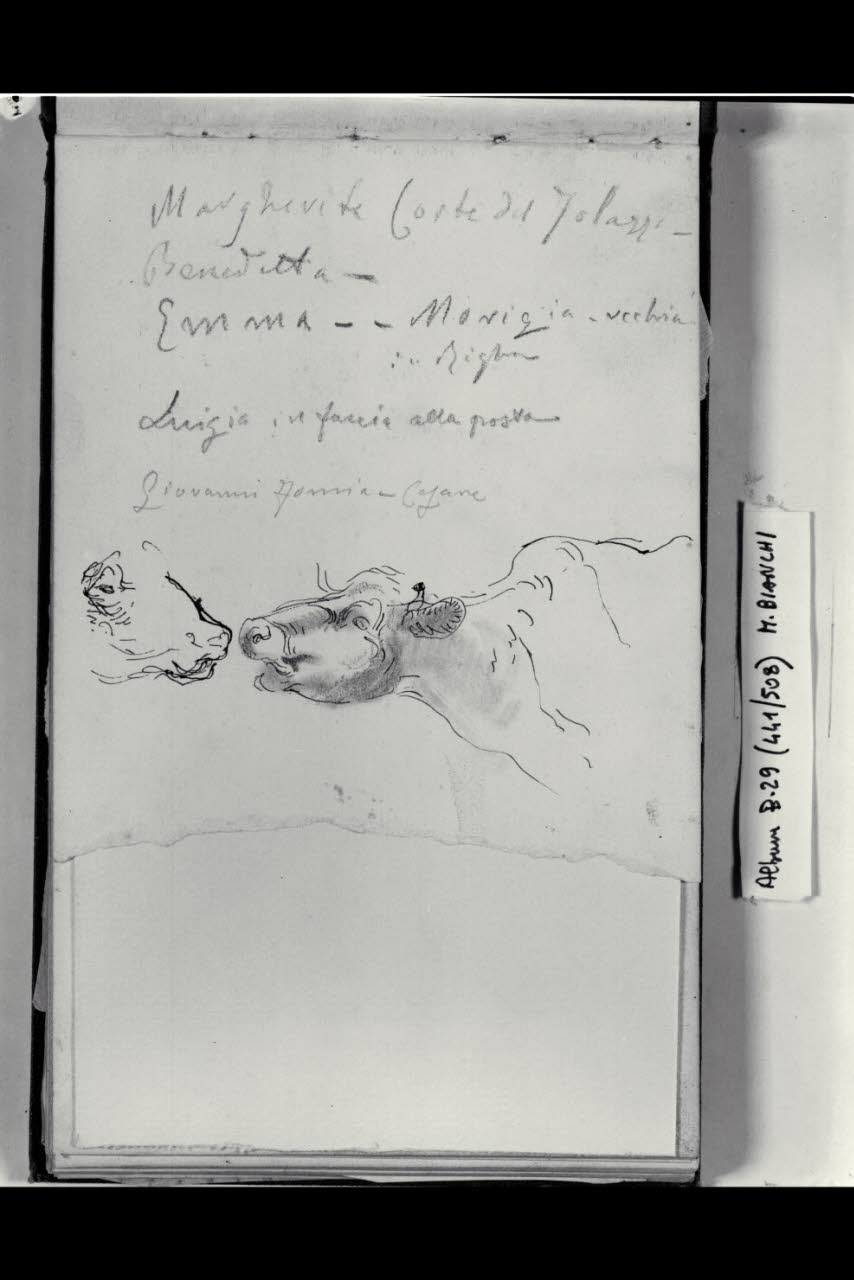 Margherita Corte del
Benedetta —
Emma - - Morigia - vecchia
in
Luigia in faccia alla posta
Giovanni
Album B.29 (441/508) M. BIANCHI